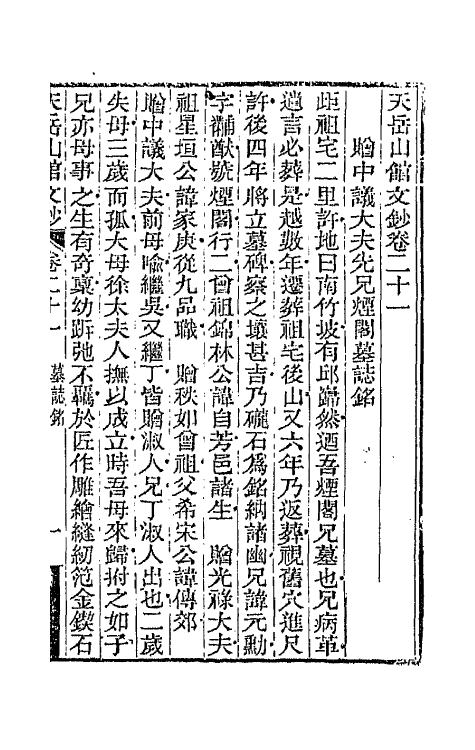 天岳山館文鈔卷二十一
贈中議大夫先兄煙閣墓誌銘
距祖宅二里許地曰南竹坡有邱巋然迺吾煙閣兄墓也兄病革
遺言必葬是越數年遷葬祖宅後山又六年乃返葬視舊穴進尺
許後四年將立墓碑察之壤甚吉乃礲石爲銘納諸幽兄諱元勳
字黼猷號煙閣行二曾祖錦林公諱自芳邑諸生 贈光祿大夫
祖星垣公諱家庚從九品職 贈秩如曾祖父希宋公諱傳郊
贈中議大夫前母喻繼吳又繼丁皆贈淑人兄丁淑人出也二歲
失母三歲而孤大母徐太夫人撫以成立時吾母來歸拊之如子
兄亦母事之生有奇稟幼跅弛不羈於匠作雕繪縫紉范金鍥石
天岳山館文鈔 卷二十一 墓誌銘 一